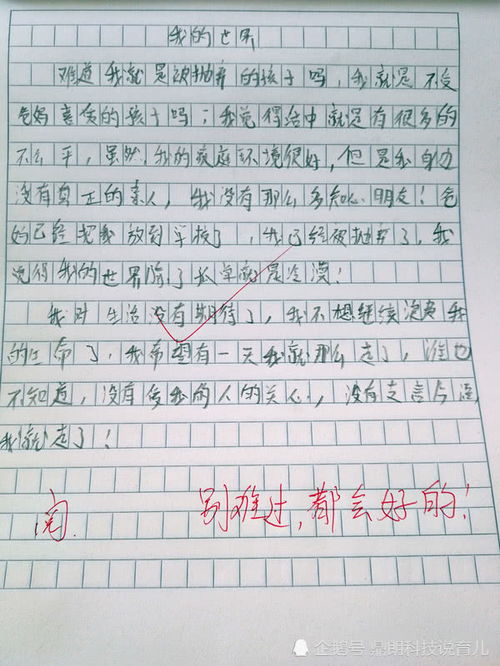 我的世界
难道我就是被抛弃的孩子吗，我就是不受
爸妈喜爱的孩子吗；我觉得活中就是有很多的
不公平，虽然，我的家庭环境很好，但是我身边
没有真正的亲人，我没有那么多知心朋友！爸
妈已经把我放到学校了，我已经被抛弃了，我
觉得我的世界除了孤单就是冷漠！
我对生活没有期待了，我不想继续浪费我
的生命了，我希望有一天我就那么走了，谁也
不知道，没有爱我的人的关心，没有支言片语
我就走了！
阅.
别难过，都会好的！
企鹅号 鼎朗科技说育儿